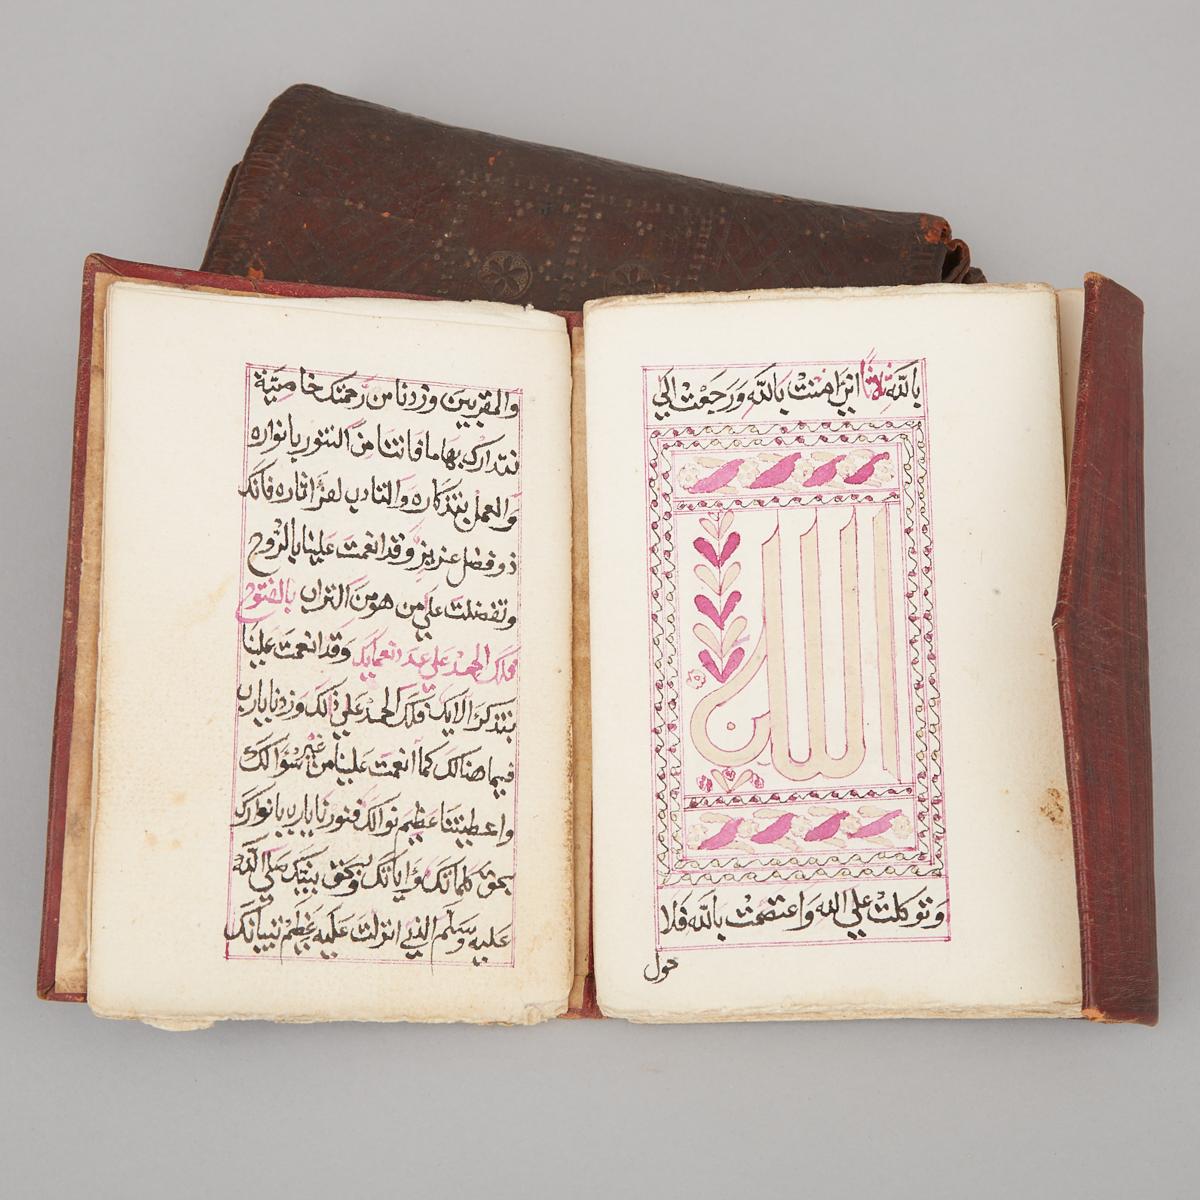 بالله ثلاثا اني امنت بالله ورجعت الي
الله
وتوكلت علي الله واعتصمت بالله فلا
حول
والمقربين وزدنا من رحمتك خاصية
نتدارك بها ما فاتنا من التنور بانواره
والعمل بتذكاره والتادب لعز اثاره فانك
ذو فضل عزيز وقد انعمت علينا بالروح
وتفضلت علي من هو من التراب بالفتوح
فلك الحمد علي وقد انعمت علينا
بتذكر الايك فلك الحمد علي ذلك وزدنا يارب
فيما هنالك كما انعمت علينا من غير سؤالك
واعطيتنا عظيم نوالك فنورنا يارب بانوارك
بحق كلماتك واياتك وبحق نبيك صلي الله
عليه وسلم الذي انزلت عليه عظم تبيانك